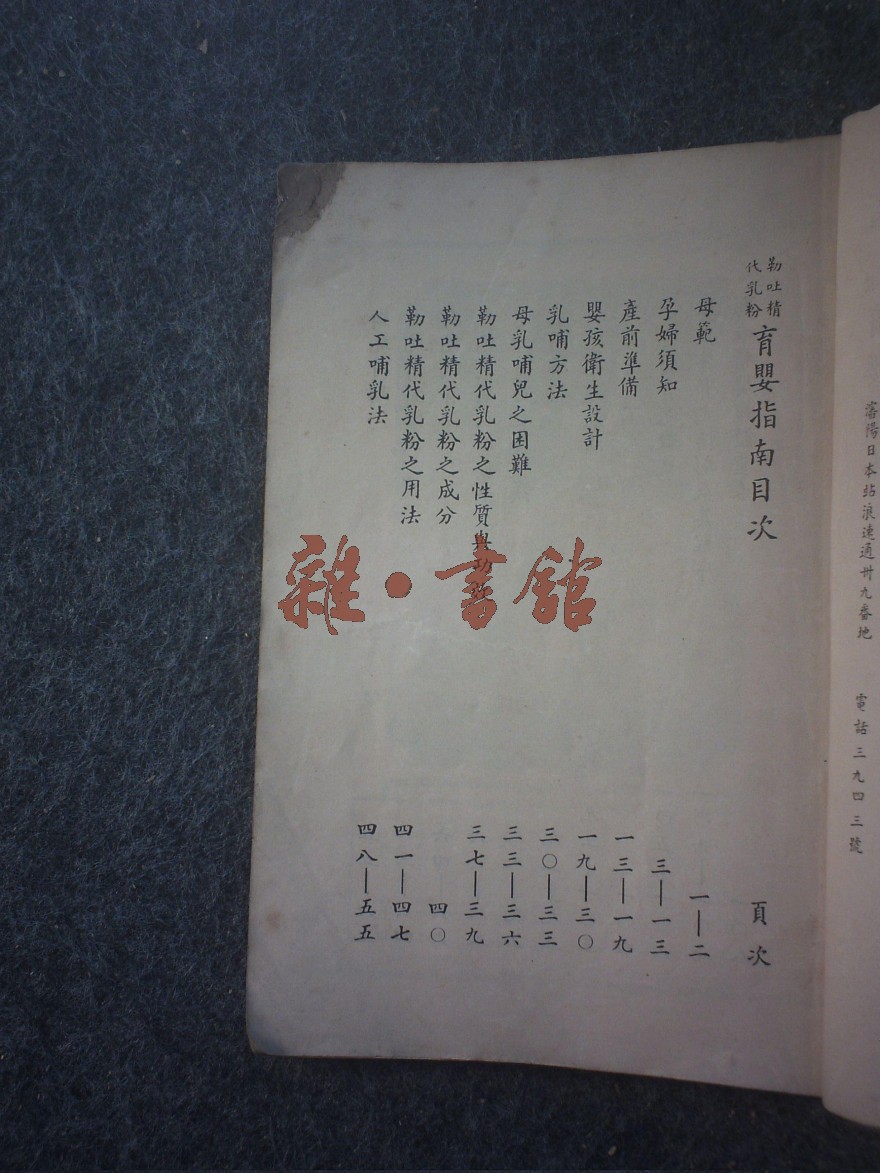 瀋陽日本站浪速通卅九番地 電話三九四三號
勒吐精代乳粉 育嬰指南目次 頁次
母範 一—二
孕婦須知 三—一三
產前準備 一三—一九
嬰孩衛生設計 一九—三〇
乳哺方法 三〇—三三
母乳哺兒之困難 三三—三六
勒吐精代乳粉之性質與功 三七—三九
勒吐精代乳粉之成分 四〇
勒吐精代乳粉之用法 四一—四七
人工哺乳法 四八—五五
雜·書館